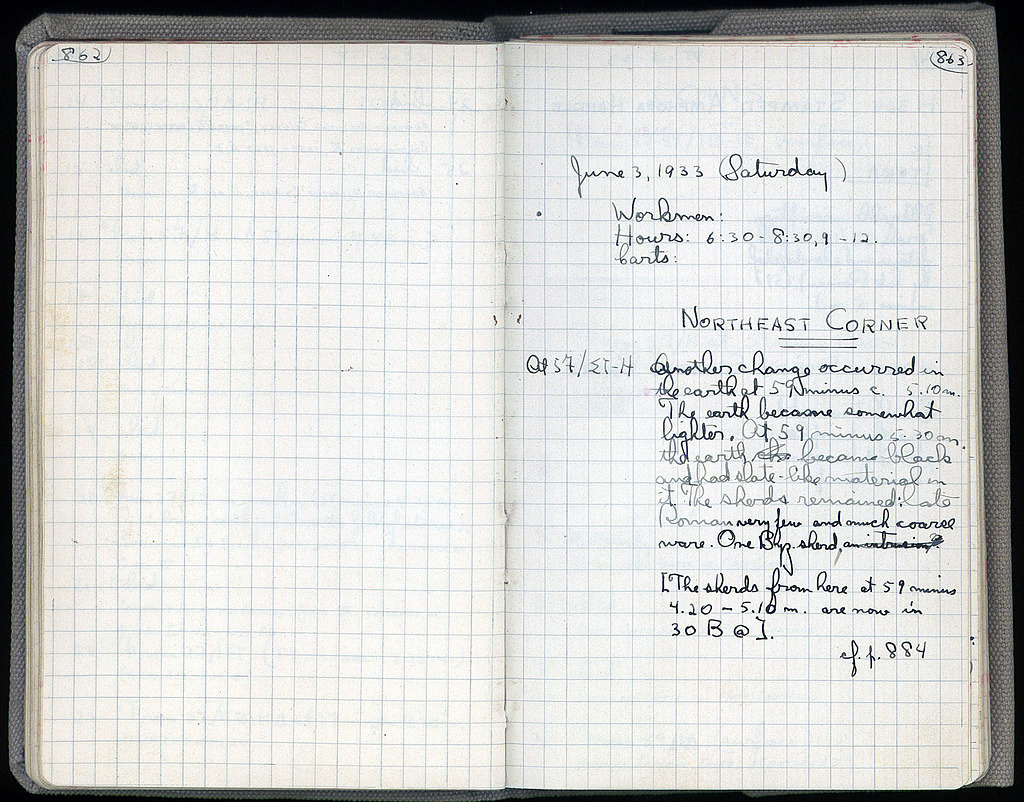 862
863
June 3, 1933 (Saturday)
Workmen:
Hours: 6:30 - 8:30, 9 - 12.
Carts:
NORTHEAST CORNER
At 57/ΣΤ-Η Another change occurred in
the earth at 59 minus c. 5.10 m.
The earth became somewhat
lighter. At 59 minus 5.30 m.
the earth became black
and had slate-like material in
it. The sherds remained: late
Roman very few and much coarse
ware. One Byz. sherd, an intrusion?
[The sherds from here at 59 minus
4.20 - 5.10 m. are now in
30 B @].
cf. p. 884